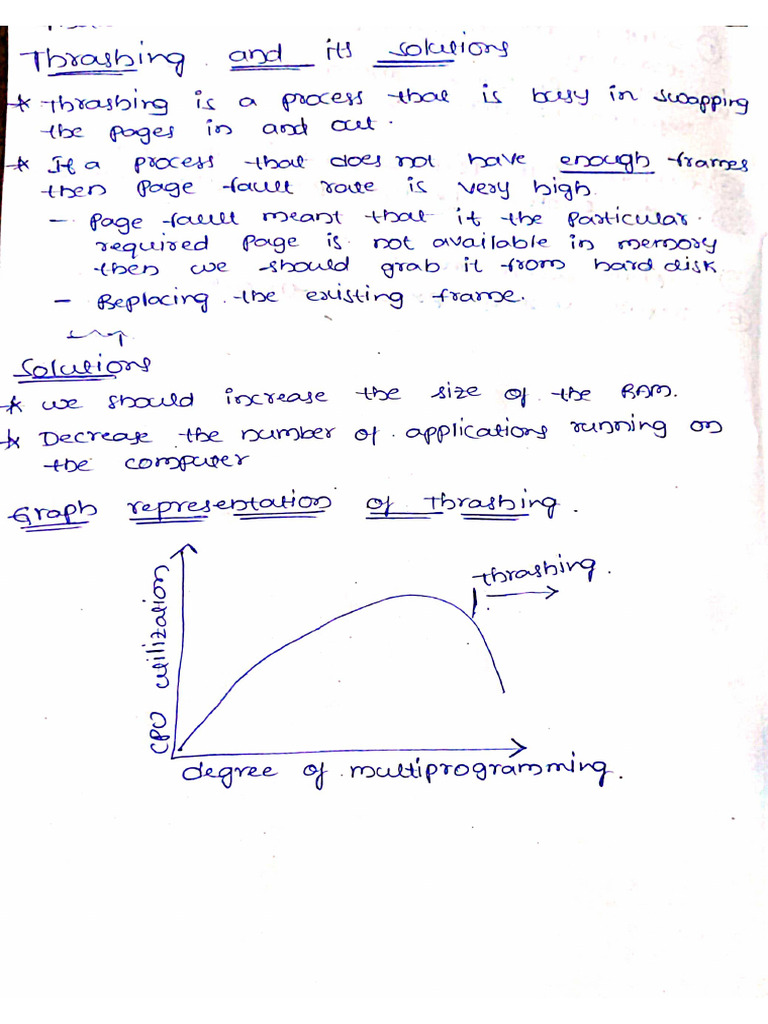 Thrashing and its solutions
* Thrashing is a process that is busy in swapping
the pages in and out.
* If a process that does not have enough frames
then page fault rate is very high.
- Page fault meant that if the particular
required page is not available in memory
then we should grab it from hard disk
- Replacing the existing frame.
Solutions
* we should increase the size of the RAM.
* Decrease the number of applications running on
the computer
Graph representation of thrashing.
thrashing.
CPU utilization
degree of multiprogramming.